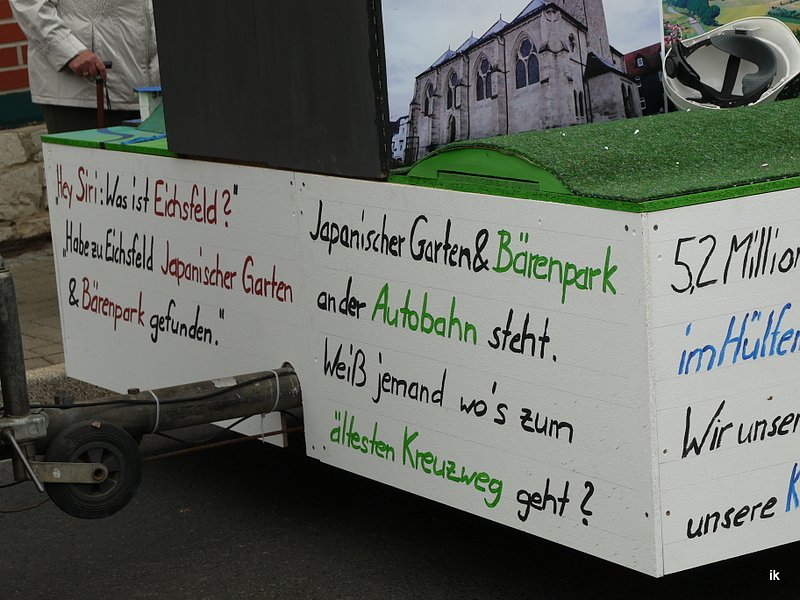 „Hey Siri: Was ist Eichsfeld?"
„Habe zu Eichsfeld Japanischer Garten
& Bärenpark gefunden."
Japanischer Garten & Bärenpark
an der Autobahn steht.
Weiß jemand wo's zum
ältesten Kreuzweg geht?
5,2 Million
im Hülfen
Wir unser
unsere K
ik